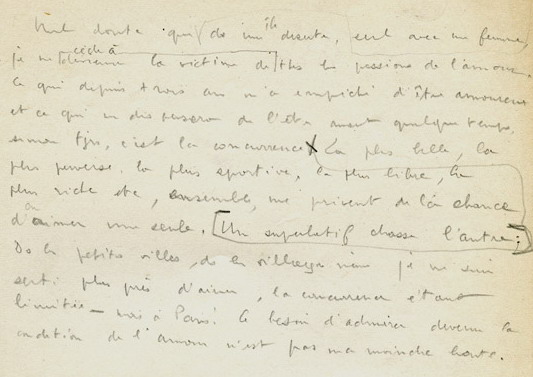 Nul doute que ds une île déserte, seul avec une femme,
je ne devienne la victime de ttes les passions de l'amour.
cède à
Ce qui depuis trois ans m'a empêché d'être amoureux
et ce qui me dispensera de l'être avant quelque temps,
sinon tjrs, c'est la concurrence. La plus belle, la
plus perverse, la plus sportive, la plus libre, la
plus riche etc, ensemble, me privent de la chance
d'en aimer une seule. [Un superlatif chasse l'autre;]
Ds les petites villes, ds les villages même je me suis
senti plus près d'aimer, la concurrence étant
limitée — mais à Paris! Ce besoin d'admirer devenu la
condition de l'amour n'est pas ma moindre honte.